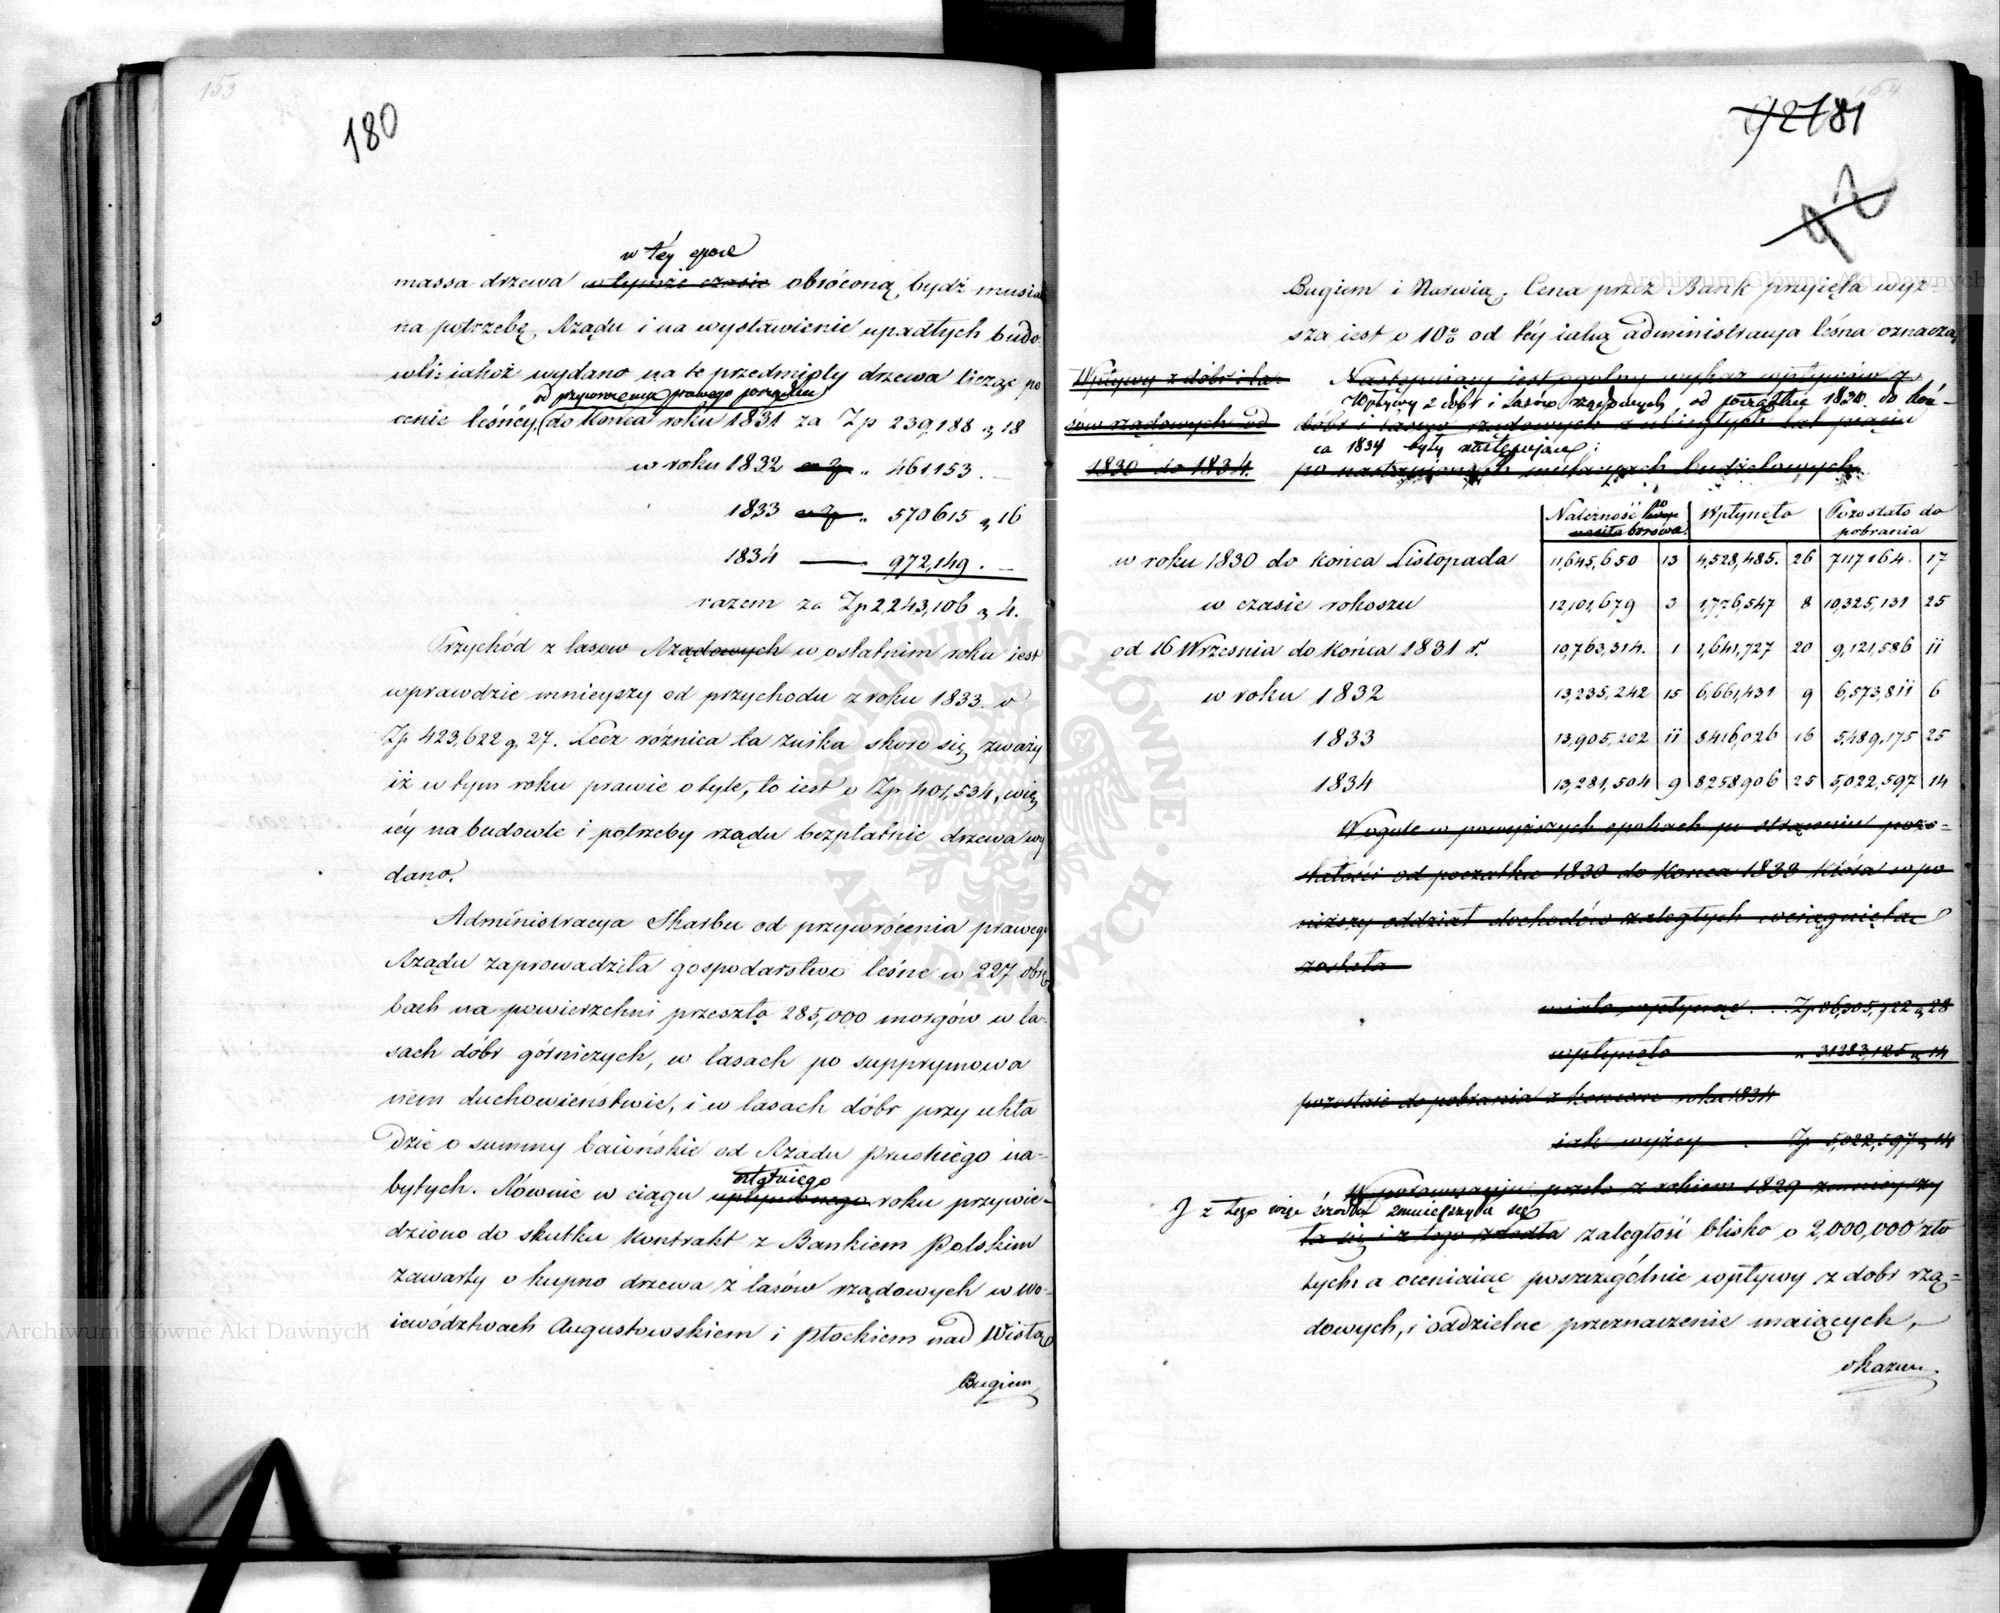 153
180
w téy epoce
massa drzewa w tymże czasie obróconą bydź musia
na potrzebę Rządu i na wystawienie upadłych budo-
wli: iakoż wydano na te przedmioty drzewa licząc po
od przywrócenia prawego porządku
cenie leśnéy, do końca roku 1831 za Zp 239,188 g 18
w roku 1832 „ 461153. —
1833 „ 570615 g 16
1834 — 972,149. —
razem za Zp 2,243,106 g 4.
Przychód z lasow Rządowych w ostatnim roku iest
wprawdzie mnieyszy od przychodu z roku 1833. o
Zp 423,622 g 27. Lecz różnica ta znika skoro się zważy
iż w tym roku prawie o tyle, to iest o Zp 401,534, wię
céy na budowle i potrzeby rządu bezpłatnie drzewa wy
dano.
Administracya Skarbu od przywrócenia prawego
Rządu zaprowadziła gospodarstwo leśne w 227 obrę
bach na powierzchni przeszło 285,000 morgów w la-
sach dóbr górniczych, w lasach po supprymowa
nem duchowieństwie, i w lasach dóbr przy ukła
dzie o summy baiońskie od Rządu Pruskiego na-
bytych. Równie w ciągu
ostatniego
upłynionego roku przywie-
dziono do skutku kontrakt z Bankiem Polskim
zawarty o kupno drzewa z lasów rządowych w Wo-
iewództwach Augustowskiem i Płockiem nad Wisłą
Bugiem
154
92 181
92
Bugiem i Narwią. Cena przez Bank przyięta wyż-
sza iest o 10% od téy iaką administracya leśna oznacza,
Wpływy z dóbr i la-
sów rządowych od
1830 do 1834.
Następuiący iest ogólny wykaz wpływów z
Wpływy z dóbr i lasów rządowych od początku 1830. do koń-
dóbr i lasów rządowych z ubiegłych lat pięciu
ca 1834 były następujące:
Należność Wpłynęło Pozostało do
pobrania
w roku 1830 do końca Listopada 11,645,650 13 4,528,485. 26 7117164. 17
w czasie rokoszu 12,101,679 3 1,776,547 8 10,325,131 25
od 16 Września do końca 1831 r. 10,763,314. 1 1,641,727 20 9,121,586 11
w roku 1832 13,235,242 15 6,661,431 9 6,573,811 6
1833 13,905,202 11 8416,026 16 5,489,175 25
1834 13,281,504 9 8258906 25 5,022,597 14
Wogule w powyższych epokach po strąceniu pozo-
stałości od początku 1830 do końca 1833 która w po
niższy oddział dochodów zaległych wciągnięta
została
miało wpłynąć . . Zp 36,305,722 g 28
wpłynęło „ 31283,125 g 14
pozostaie do pobrania z końcem roku 1834
iak wyżey . Zp 5,022,597 g 14
W porównaniu przeto z rokiem 1829 zmnieyszy
I z tego więc źródła zmnieyszyła się
ła się i z tego źródła zaległość blisko o 2,000,000 zło
tych, a oceniaiąc poszczególnie wpływy z dóbr rzą-
dowych, i oddzielne przeznaczenie maiących,
okazuie
Archiwum Główne Akt Dawnych
Archiwum Główne Akt Dawnych
ARCHIWUM GŁÓWNE · AKT DAWNYCH ·